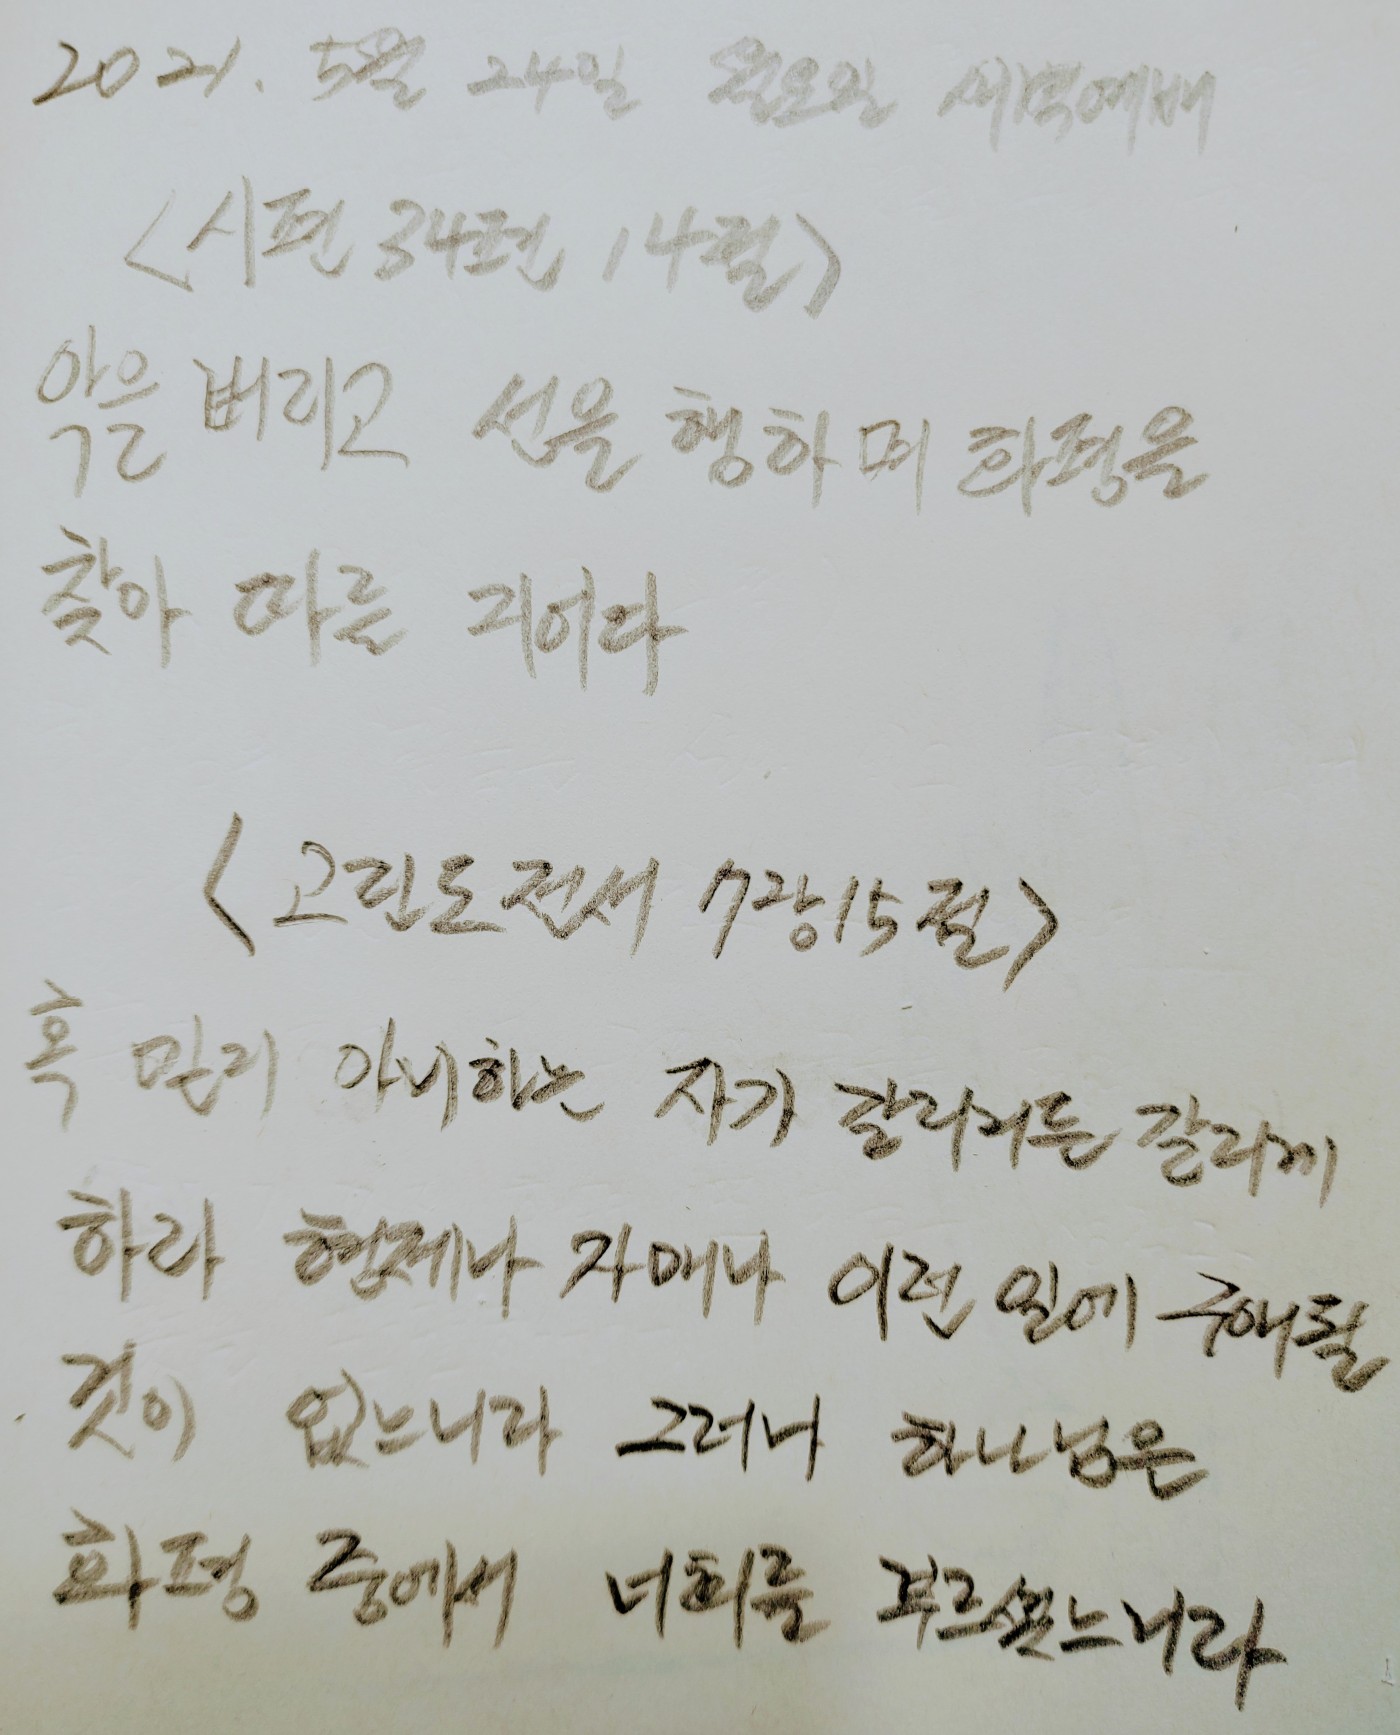 2021. 5월 24일 월요일 새벽예배
<시편 34편 14절>
악을 버리고 선을 행하며 화평을
찾아 따를 지어다
<고린도전서 7장 15절>
혹 믿지 아니하는 자가 갈라지든 갈라게
하라 형제나 자매나 이런 일에 구애될
것이 없느니라 그러나 하나님은
화평 중에서 너희를 부르셨느니라